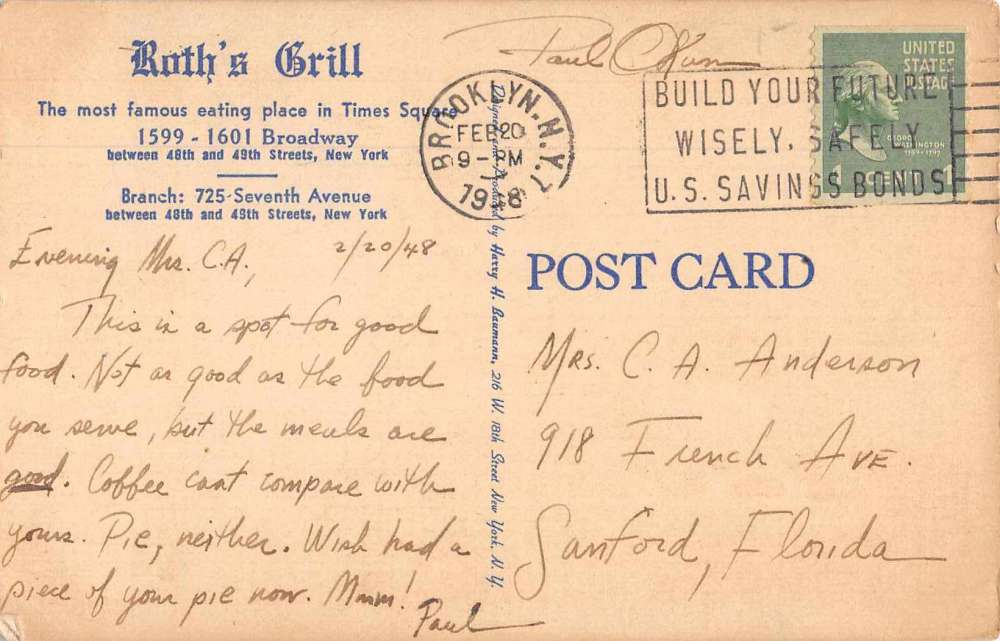 Roth's Grill
The most famous eating place in Times Square
1599 - 1601 Broadway
between 48th and 49th Streets, New York
Branch: 725 Seventh Avenue
between 48th and 49th Streets, New York
Evening Mrs. C.A, 2/20/48
This is a spot for good
food. Not as good as the food
you serve, but the meals are
good. Coffee cant compare with
yours. Pie, neither. Wish had a
piece of your pie now. Mmm!
Paul
Designed and Produced by Harry H. Baumann, 216 W. 18th Street New York, N. Y.
Paul
BROOKLYN. N.Y. 7
FEB 20
9 - PM
1948
BUILD YOUR FUTURE
WISELY, SAFELY
U.S. SAVINGS BONDS
UNITED
STATES
POSTAGE
GEORGE
WASHINGTON
1789-1797
1 CENT 1
POST CARD
Mrs. C. A. Anderson
918 French Ave.
Sanford, Florida